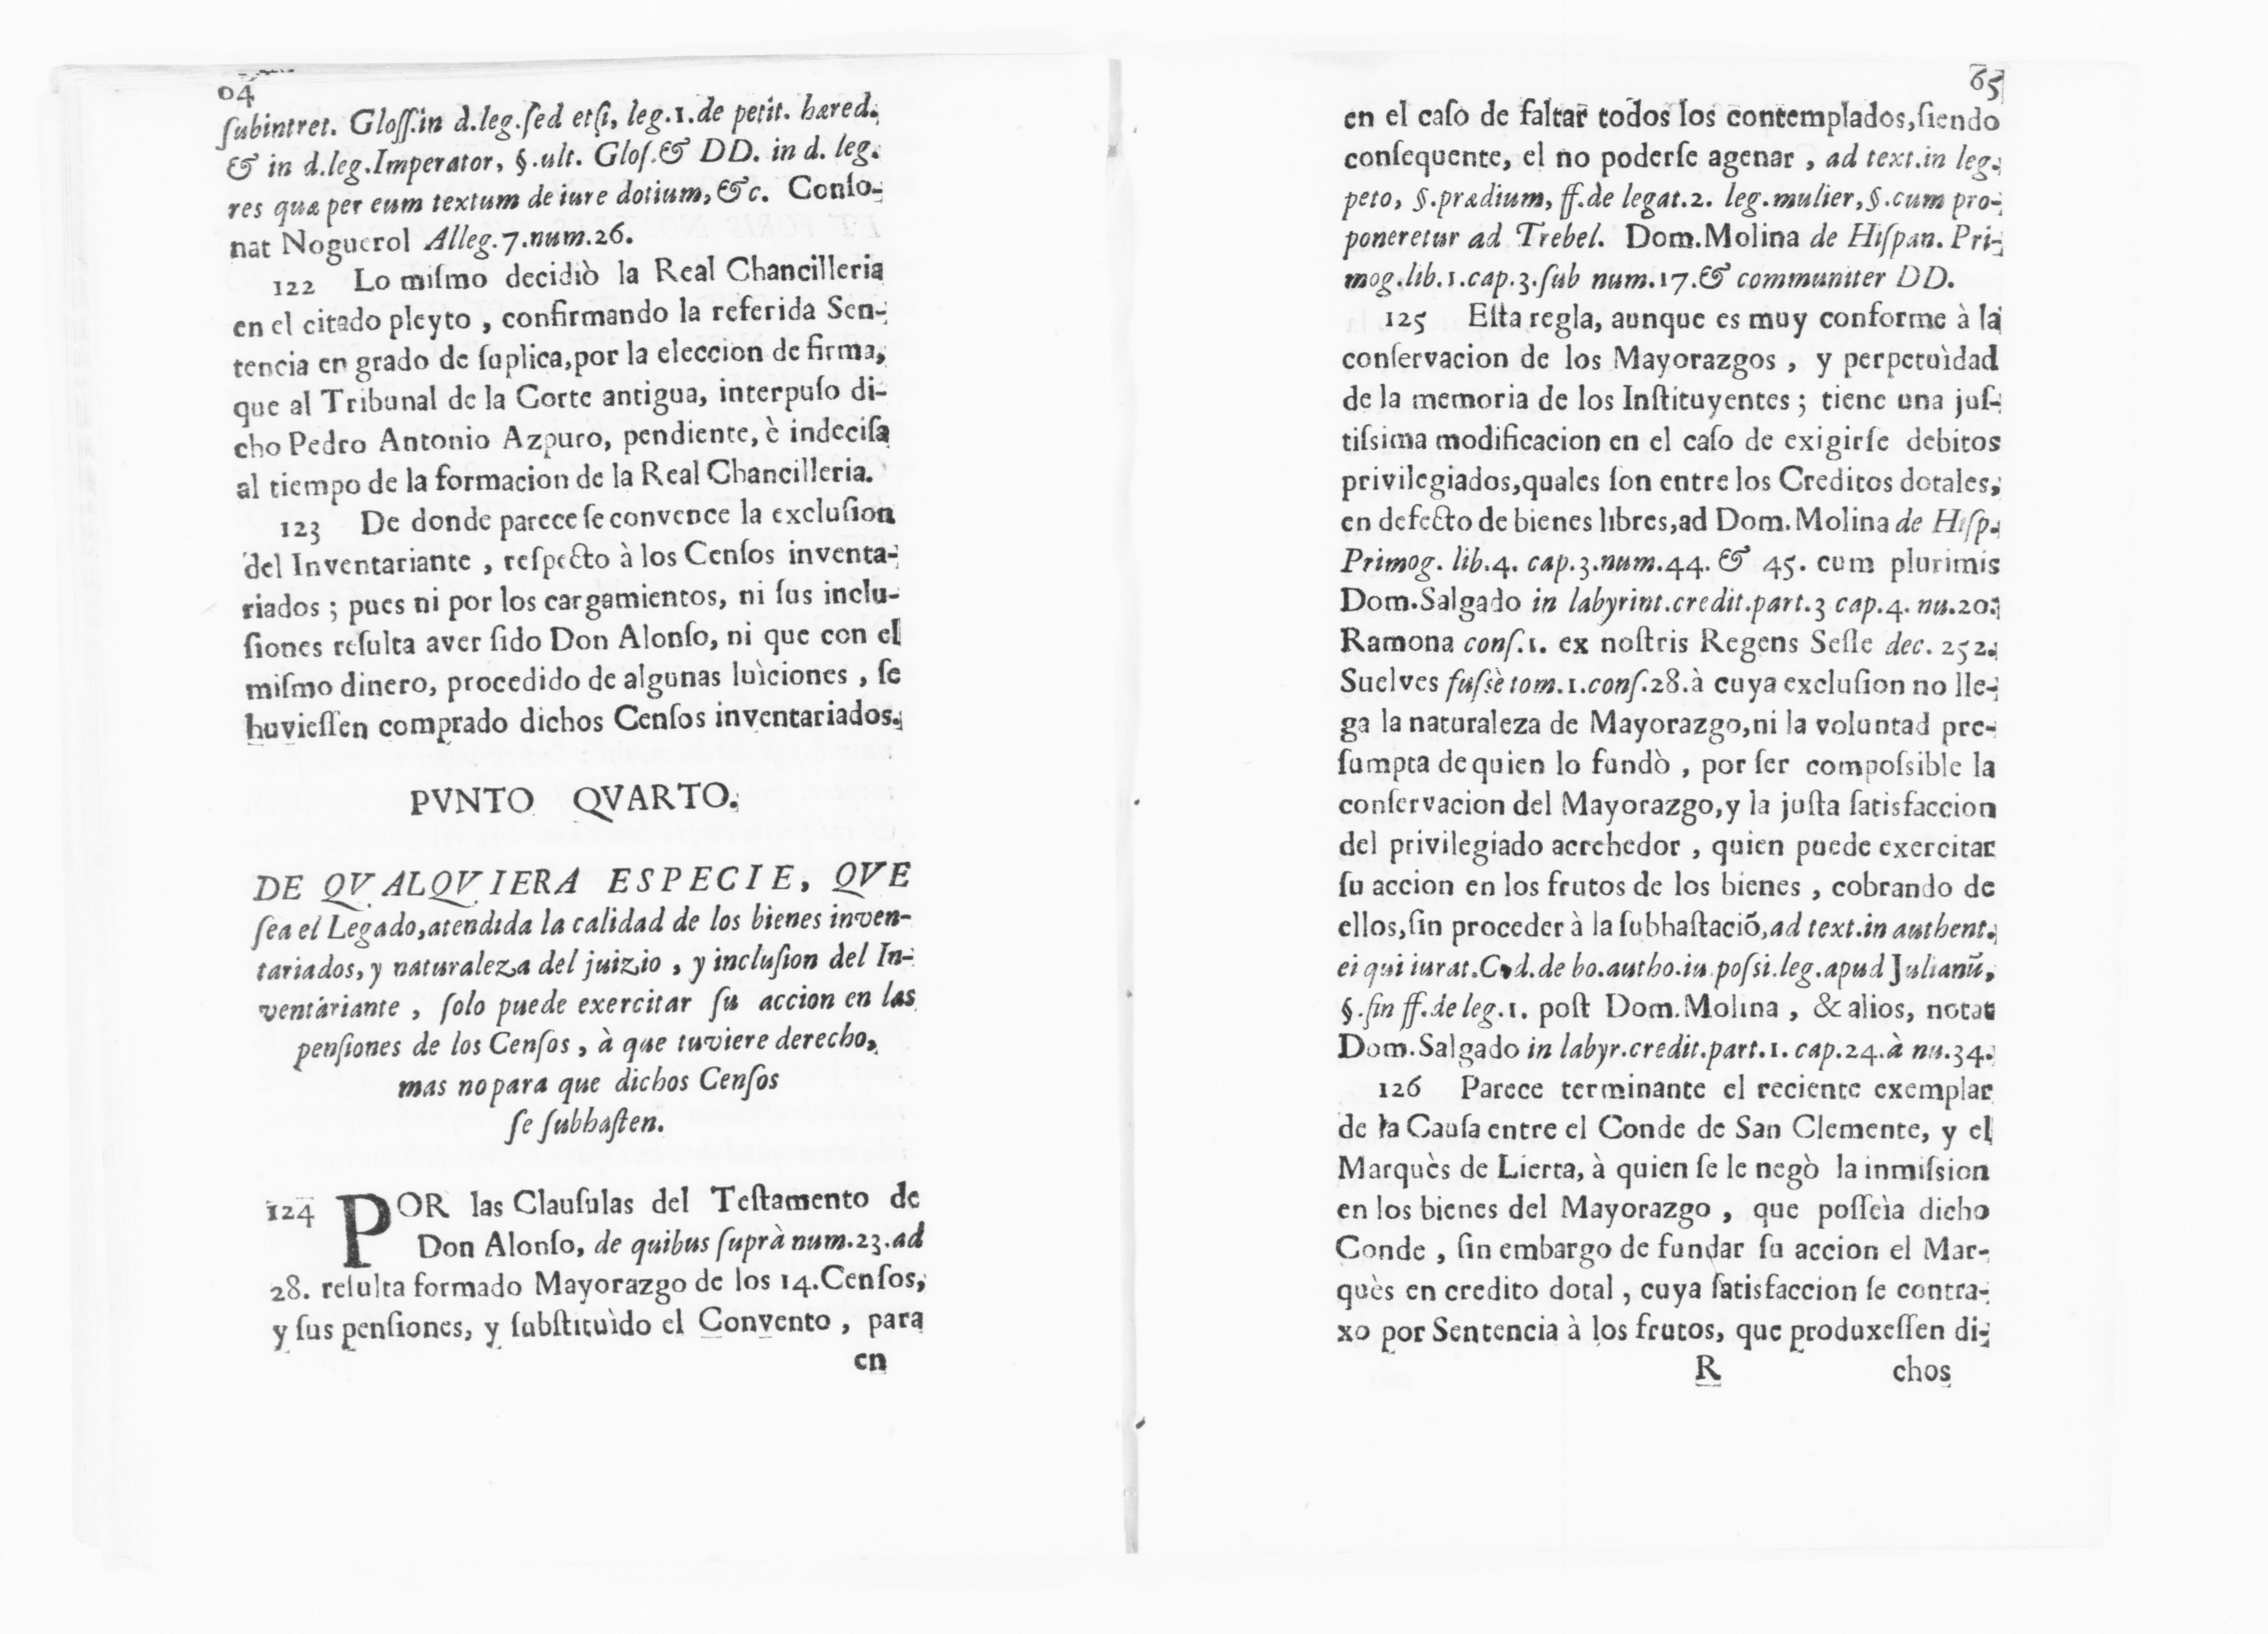 64
ſubintret. Gloſſ.in d.leg.ſed etſi, leg.1.de petit. hæred.
& in d.leg.Imperator, §.ult. Gloſ.& DD. in d. leg.
res quæ per eum textum de iure dotium, &c. Conſo-
nat Noguerol Alleg.7.num.26.
122 Lo miſmo decidiò la Real Chancilleria
en el citado pleyto , confirmando la referida Sen-
tencia en grado de ſuplica,por la eleccion de firma,
que al Tribunal de la Corte antigua, interpuſo di-
cho Pedro Antonio Azpuro, pendiente, è indeciſa
al tiempo de la formacion de la Real Chancilleria.
123 De donde parece ſe convence la excluſion
del Inventariante , reſpecto à los Cenſos inventa-
riados ; pues ni por los cargamientos, ni ſus inclu-
ſiones reſulta aver ſido Don Alonſo, ni que con el
miſmo dinero, procedido de algunas luìciones , ſe
huvieſſen comprado dichos Cenſos inventariados.
PVNTO QVARTO.
DE QVALQVIERA ESPECIE, QVE
ſea el Legado,atendida la calidad de los bienes inven-
tariados, y naturaleza del juizio , y incluſion del In-
ventariante , ſolo puede exercitar ſu accion en las
penſiones de los Cenſos , à que tuviere derecho,
mas no para que dichos Cenſos
ſe ſubhaſten.
124 POR las Clauſulas del Teſtamento de
Don Alonſo, de quibus ſuprà num.23.ad
28. reſulta formado Mayorazgo de los 14.Cenſos,
y ſus penſiones, y ſubſtituìdo el Convento , para
en
65
en el caſo de faltar todos los contemplados,ſiendo
conſequente, el no poderſe agenar , ad text.in leg.
peto, §.prædium, ff.de legat.2. leg.mulier, §.cum pro-
poneretur ad Trebel. Dom.Molina de Hiſpan. Pri-
mog.lib.1.cap.3.ſub num.17.& communiter DD.
125 Eſta regla, aunque es muy conforme à la
conſervacion de los Mayorazgos , y perpetuìdad
de la memoria de los Inſtituyentes ; tiene una juſ-
tiſsima modificacion en el caſo de exigirſe debitos
privilegiados,quales ſon entre los Creditos dotales,
en defecto de bienes libres,ad Dom.Molina de Hiſp.
Primog. lib.4. cap.3.num.44. & 45. cum plurimis
Dom.Salgado in labyrint.credit.part.3 cap.4. nu.20.
Ramona conſ.1. ex noſtris Regens Seſſe dec. 252.
Suelves fuſsè tom.1.conſ.28.à cuya excluſion no lle-
ga la naturaleza de Mayorazgo,ni la voluntad pre-
ſumpta de quien lo fundò , por ſer compoſsible la
conſervacion del Mayorazgo,y la juſta ſatisfaccion
del privilegiado acrehedor , quien puede exercitar
ſu accion en los frutos de los bienes , cobrando de
ellos,ſin proceder à la ſubhaſtaciõ,ad text.in authent.
ei qui iurat.Cod.de bo.autho.iu.poſsi.leg.apud Julianũ,
§.fin ff.de leg.1. poſt Dom.Molina , & alios, notat
Dom.Salgado in labyr.credit.part.1. cap.24.à nu.34.
126 Parece terminante el reciente exemplar
de la Cauſa entre el Conde de San Clemente, y el
Marquès de Lierta, à quien ſe le negò la inmiſsion
en los bienes del Mayorazgo , que poſſeìa dicho
Conde , ſin embargo de fundar ſu accion el Mar-
quès en credito dotal , cuya ſatisfaccion ſe contra-
xo por Sentencia à los frutos, que produxeſſen di-
R chos